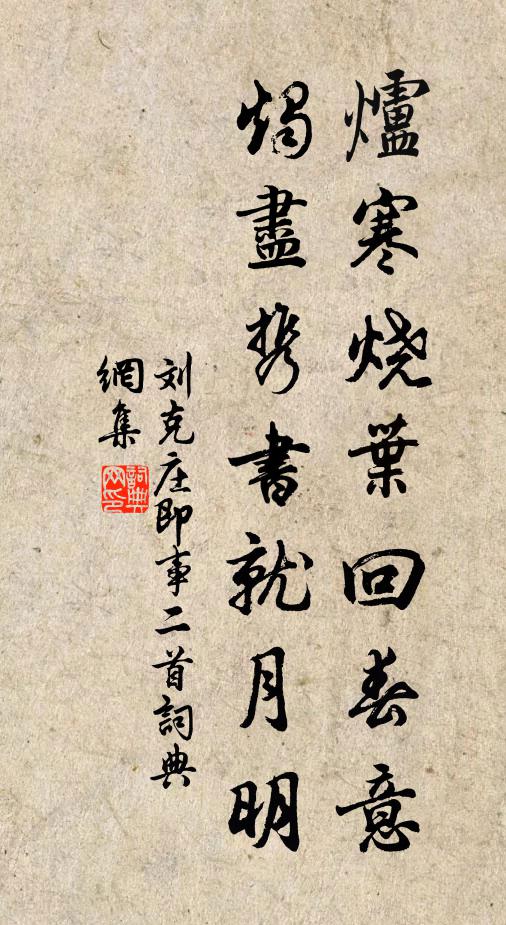 爐寒烧葉回春意
燭盡携書就月明
刘克庄即事二首詞典
網集
詞典
网印